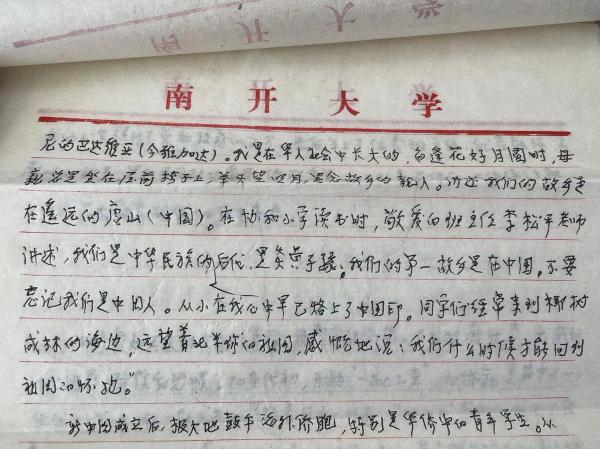 南开大学
尼的巴达维亚(今雅加达)。我是在华人社会中长大的,每逢花好月圆时,母
亲总是坐在屋前椅子上,举头望明月,思念故乡的亲人。讲述我们的故乡是
在遥远的唐山(中国)。在协和小学读书时,敬爱的班主任李松平老师
讲述,我们是中华民族的后代,是炎黄子孙。我们的第一故乡是在中国。不要
忘记我们是中国人。从小在我心中早已烙上了中国印。同学们经常来到椰树
成林的海边,远望着北半球的祖国,感慨地说:我们什么时候才能回到
祖国的怀抱。"
新中国成立后,极大地鼓午海外侨胞,特别是华侨中的青年学生。从